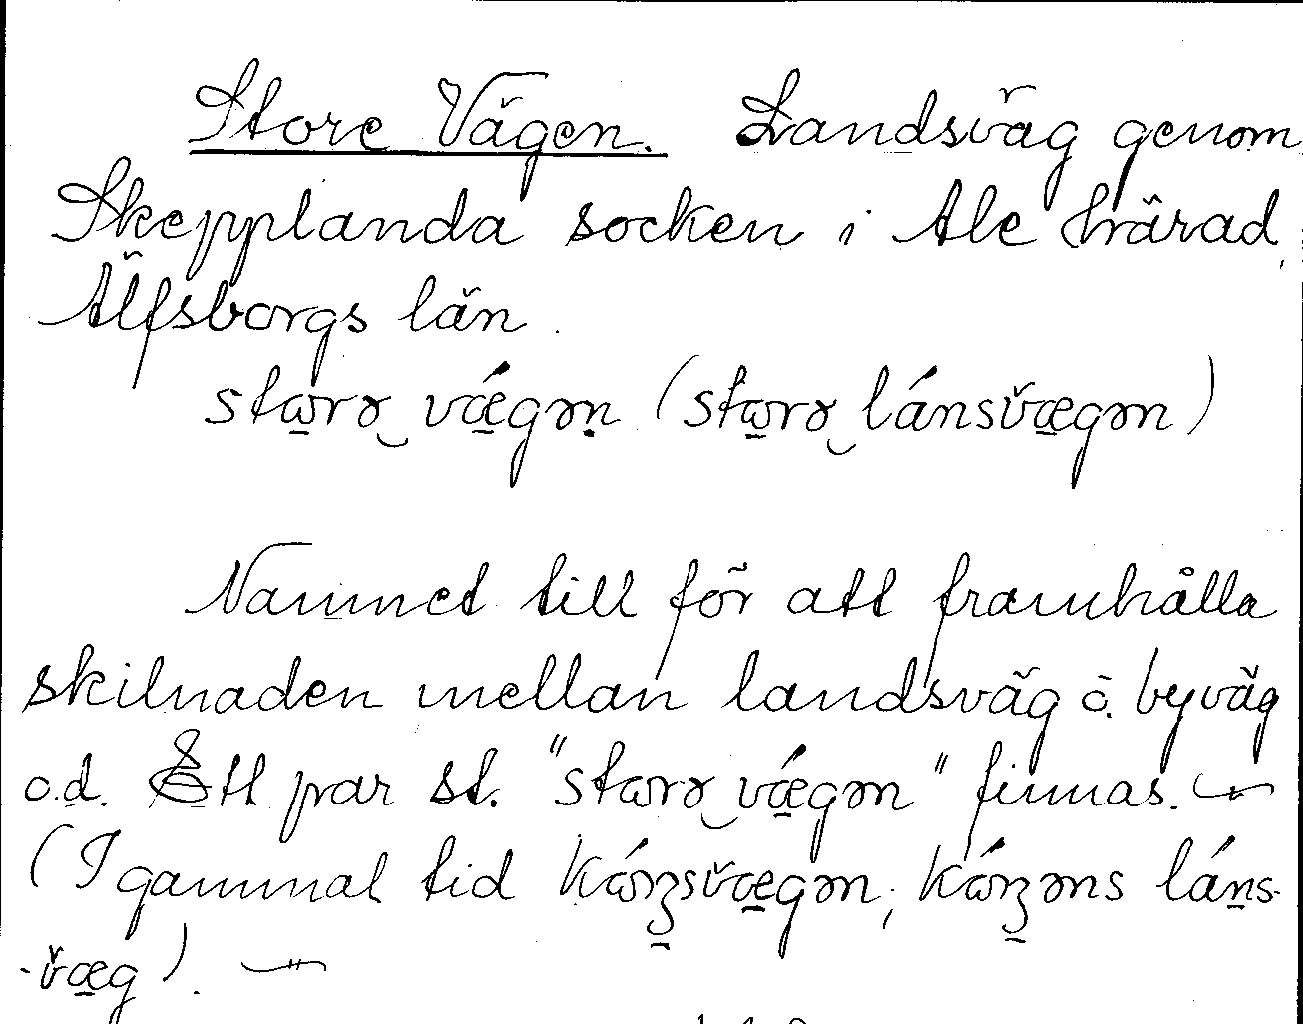 Store Vägen. Landsväg genom
Skepplanda socken i Ale härad,
Älfsborgs län.
stɷrɤ vǽgən (stɷrɤ lánsv̌ægən)
Namnet till för att framhålla
skilnaden mellan landsväg o. byväg
o.d. Ett par st. "stɷrɤ vǽgən" finnas.
(I gammal tid
-v̌æg).